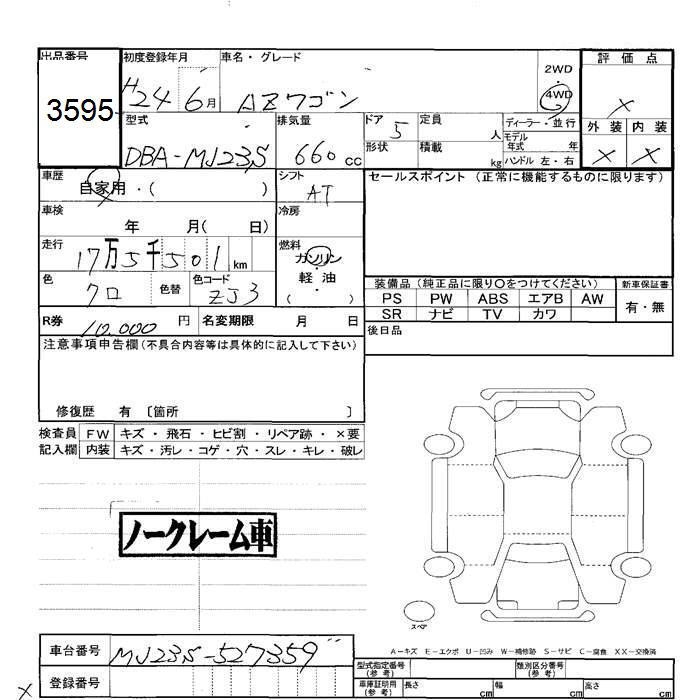 出品番号
3595
初度登録年月
H24 6月
車名・グレード
AZワゴン
2WD
4WD
評価点
×
外装 内装
× ×
型式
DBA-MJ23S
排気量
660cc
ドア 5
形状
定員 人
積載 kg
ディーラー・並行
モデル年式 年
ハンドル 左・右
車歴
自家用・( )
シフト
AT
セールスポイント (正常に機能するものに限ります)
車検
年 月( 日)
冷房
走行
17万5千501km
燃料
ガソリン
軽・油
( )
色
クロ
色替
色コード
ZJ3
装備品 (純正品に限り〇をつけてください)
新車保証書
PS PW ABS エアB AW
有・無
SR ナビ TV カワ
R券
10,000円
名変期限 月 日
後日品
注意事項申告欄(不具合内容等は具体的に記入して下さい)
修復歴 有 〔箇所 〕
検査員記入欄
FW キズ・飛石・ヒビ割・リペア跡・×要
内装 キズ・汚レ・コゲ・穴・スレ・キレ・破レ
ノークレーム車
スペア
A-キズ E-エクボ U-凹み W-補修跡 S-サビ C-腐食 XX-交換済
車台番号
MJ23S-527359
登録番号
型式指定番号(参考)
類別区分番号(参考)
車庫証明用(参考) 長さ cm 幅 cm 高さ cm
×